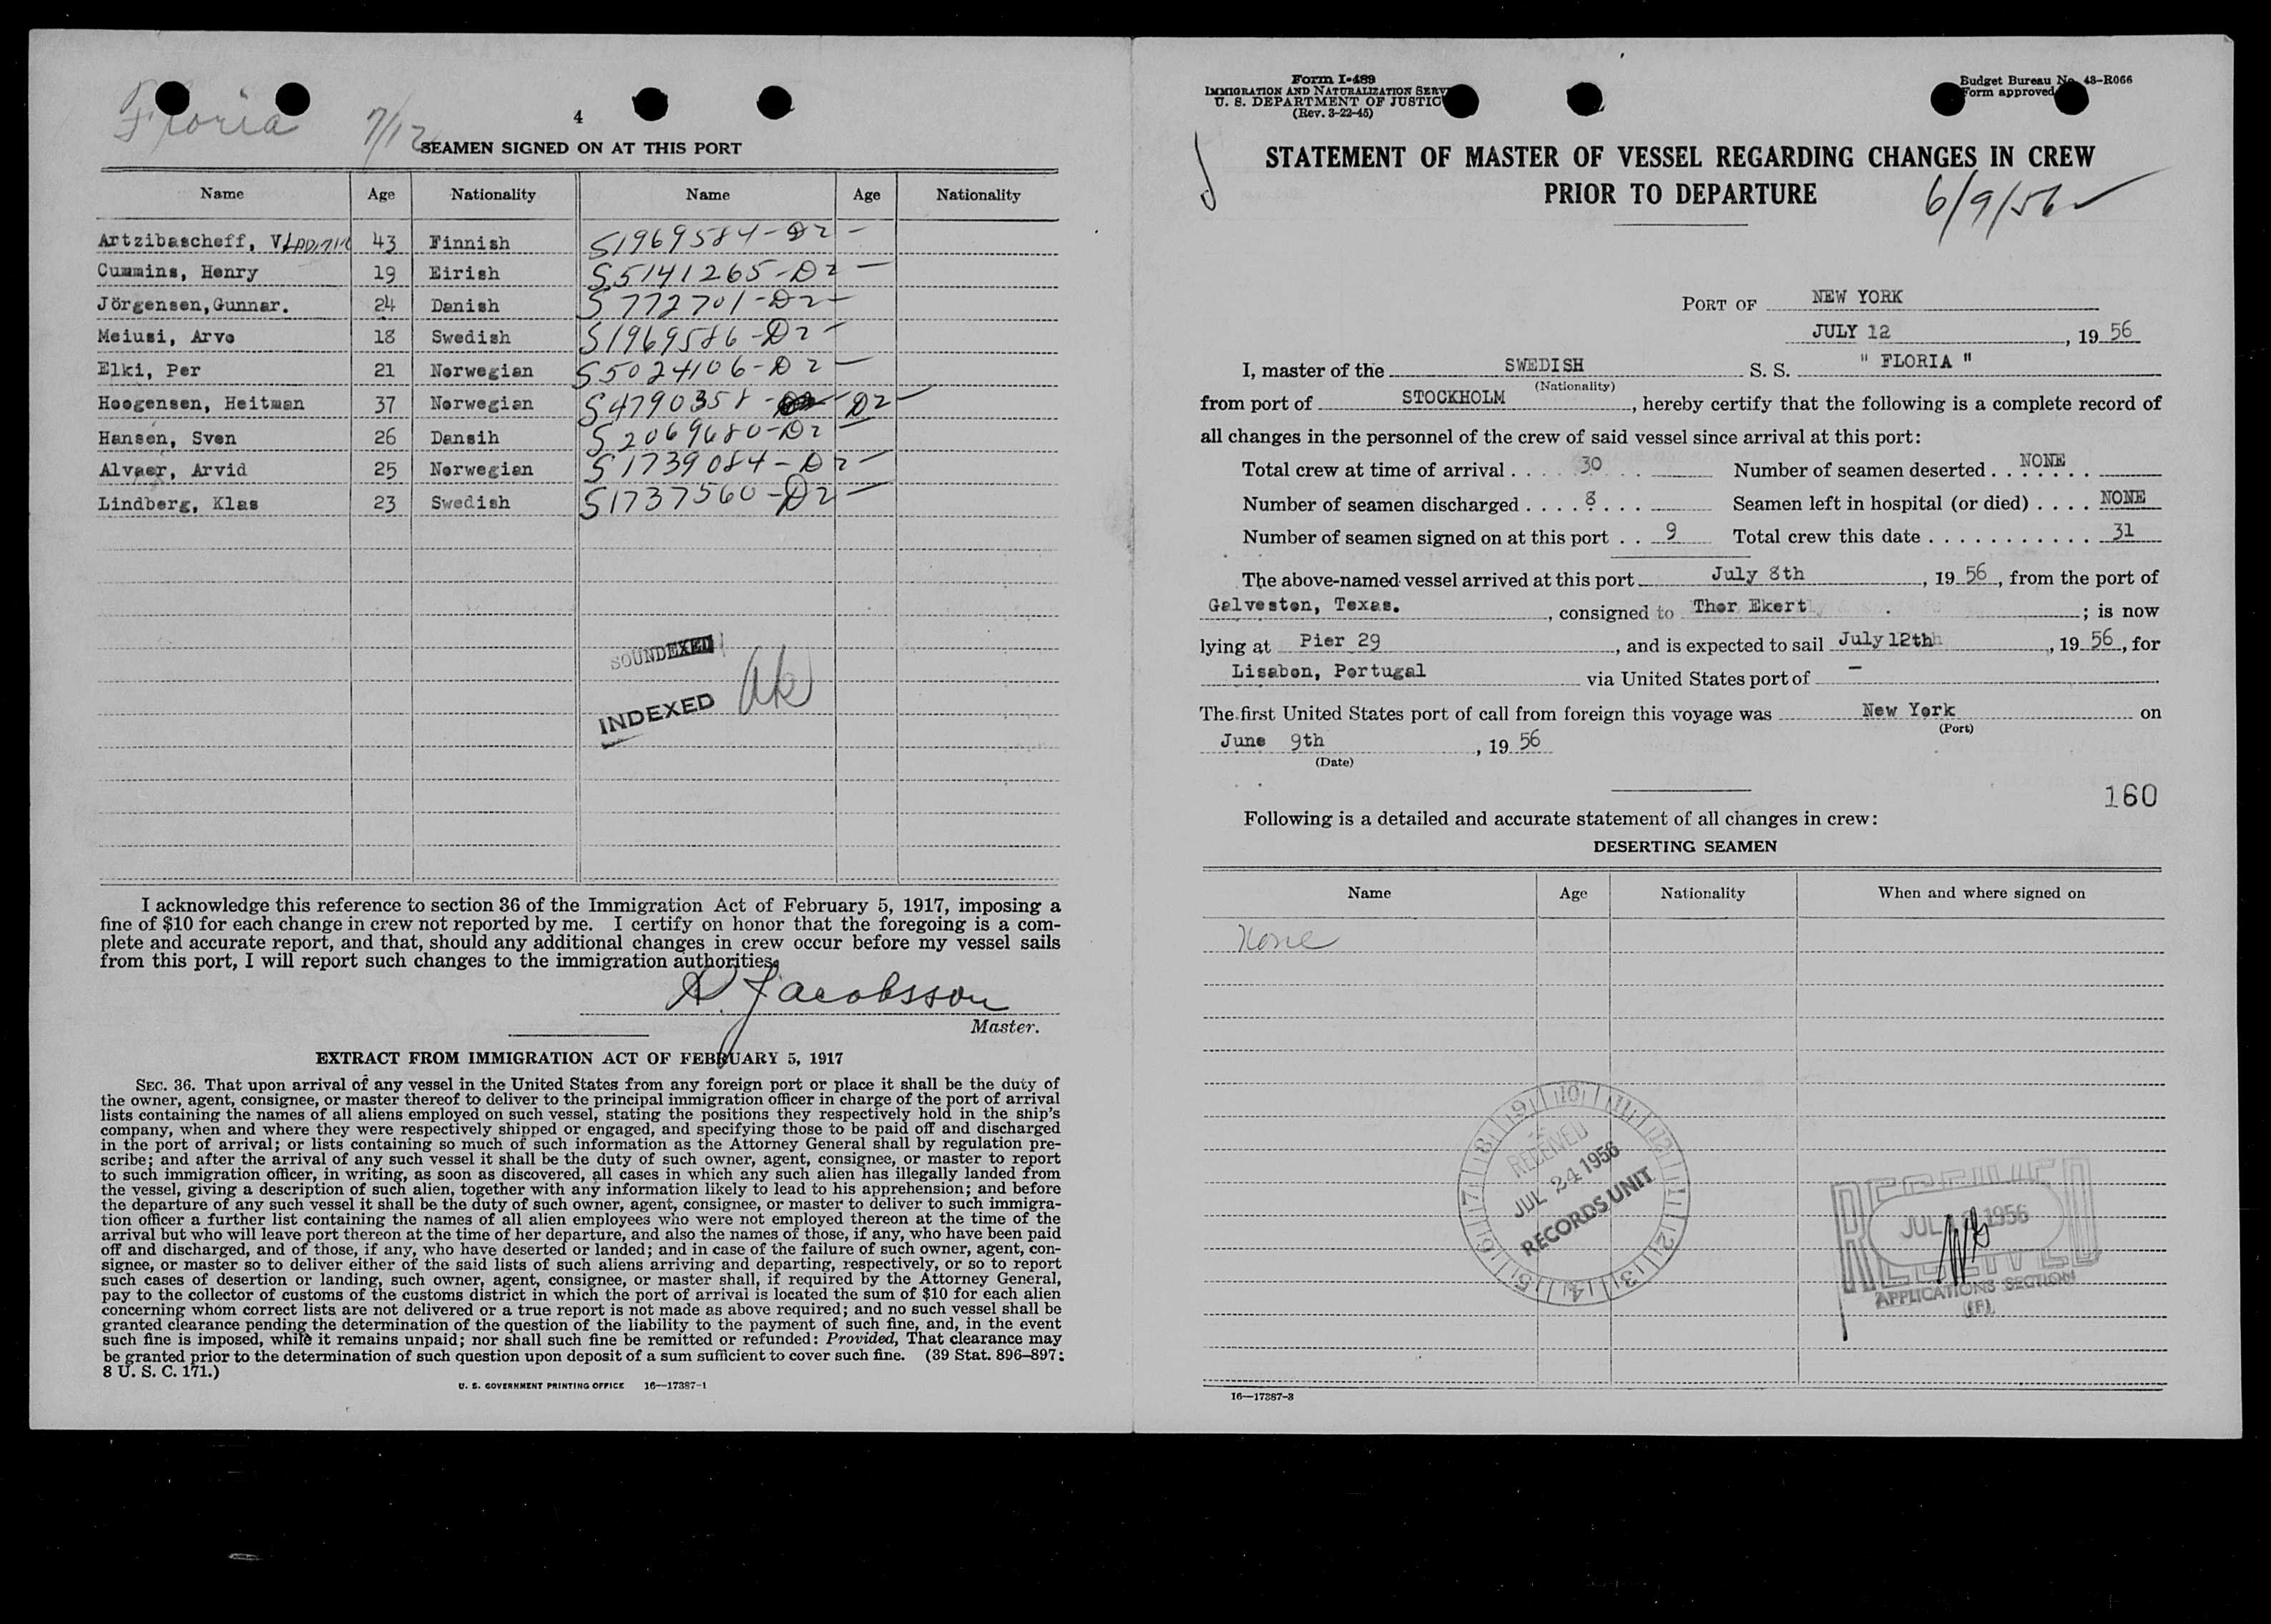 Floria 7/12
4
SEAMEN SIGNED ON AT THIS PORT
Name Age Nationality Name Age Nationality
Artzibascheff, VLADIMIR 43 Finnish S1969584-D2 -
Cummins, Henry 19 Eirish S5141265-D2 -
Jörgensen,Gunnar. 24 Danish S772701-D2 -
Meiusi, Arvo 18 Swedish S1969586-D2 -
Elki, Per 21 Norwegian S5024106-D2 -
Hoogensen, Heitman 37 Norwegian S4790358- D2 -
Hansen, Sven 26 Dansih S2069680-D2
Alvaer, Arvid 25 Norwegian S1739084-D2 -
Lindberg, Klas 23 Swedish S1737560-D2 -
SOUNDEXED
INDEXED
I acknowledge this reference to section 36 of the Immigration Act of February 5, 1917, imposing a
fine of $10 for each change in crew not reported by me. I certify on honor that the foregoing is a com-
plete and accurate report, and that, should any additional changes in crew occur before my vessel sails
from this port, I will report such changes to the immigration authorities.
Jacobsson
Master.
EXTRACT FROM IMMIGRATION ACT OF FEBRUARY 5, 1917
SEC. 36. That upon arrival of any vessel in the United States from any foreign port or place it shall be the duty of
the owner, agent, consignee, or master thereof to deliver to the principal immigration officer in charge of the port of arrival
lists containing the names of all aliens employed on such vessel, stating the positions they respectively hold in the ship's
company, when and where they were respectively shipped or engaged, and specifying those to be paid off and discharged
in the port of arrival; or lists containing so much of such information as the Attorney General shall by regulation pre-
scribe; and after the arrival of any such vessel it shall be the duty of such owner, agent, consignee, or master to report
to such immigration officer, in writing, as soon as discovered, all cases in which any such alien has illegally landed from
the vessel, giving a description of such alien, together with any information likely to lead to his apprehension; and before
the departure of any such vessel it shall be the duty of such owner, agent, consignee, or master to deliver to such immigra-
tion officer a further list containing the names of all alien employees who were not employed thereon at the time of the
arrival but who will leave port thereon at the time of her departure, and also the names of those, if any, who have been paid
off and discharged, and of those, if any, who have deserted or landed; and in case of the failure of such owner, agent, con-
signee, or master so to deliver either of the said lists of such aliens arriving and departing, respectively, or so to report
such cases of desertion or landing, such owner, agent, consignee, or master shall, if required by the Attorney General,
pay to the collector of customs of the customs district in which the port of arrival is located the sum of $10 for each alien
concerning whom correct lists are not delivered or a true report is not made as above required; and no such vessel shall be
granted clearance pending the determination of the question of the liability to the payment of such fine, and, in the event
such fine is imposed, while it remains unpaid; nor shall such fine be remitted or refunded: Provided, That clearance may
be granted prior to the determination of such question upon deposit of a sum sufficient to cover such fine. (39 Stat. 896–897;
8 U. S. C. 171.)
U. S. GOVERNMENT PRINTING OFFICE 16—17387-1
Form I-489
IMMIGRATION AND NATURALIZATION SERV
U. S. DEPARTMENT OF JUSTIC
(Rev. 3-22-45)
Budget Bureau No. 43-R066
Form approved
STATEMENT OF MASTER OF VESSEL REGARDING CHANGES IN CREW
PRIOR TO DEPARTURE
6/9/56
PORT OF NEW YORK
JULY 12, 19 56
I, master of the SWEDISH S. S. " FLORIA "
(Nationality)
from port of STOCKHOLM, hereby certify that the following is a complete record of
all changes in the personnel of the crew of said vessel since arrival at this port:
Total crew at time of arrival . . . . 30 Number of seamen deserted . . NONE
Number of seamen discharged . . . . 8 . . . Seamen left in hospital (or died) . . . . NONE
Number of seamen signed on at this port . . 9 Total crew this date . . . . . . . . . . . 31
The above-named vessel arrived at this port July 8th, 19 56, from the port of
Galveston, Texas., consigned to Thor Ekert ; is now
lying at Pier 29, and is expected to sail July 12th, 19 56, for
Lisabon, Portugal via United States port of –
The first United States port of call from foreign this voyage was New York on
(Port)
June 9th, 19 56
(Date)
160
Following is a detailed and accurate statement of all changes in crew:
DESERTING SEAMEN
Name Age Nationality When and where signed on
None
9 10 11 12 1 2 3 4 5 6 7 8
RECEIVED
JUL 24 1956
RECORDS UNIT
RECEIVED
JUL 1956
RECEIVED
APPLICATIONS SECTION
(F)
16—17387-3